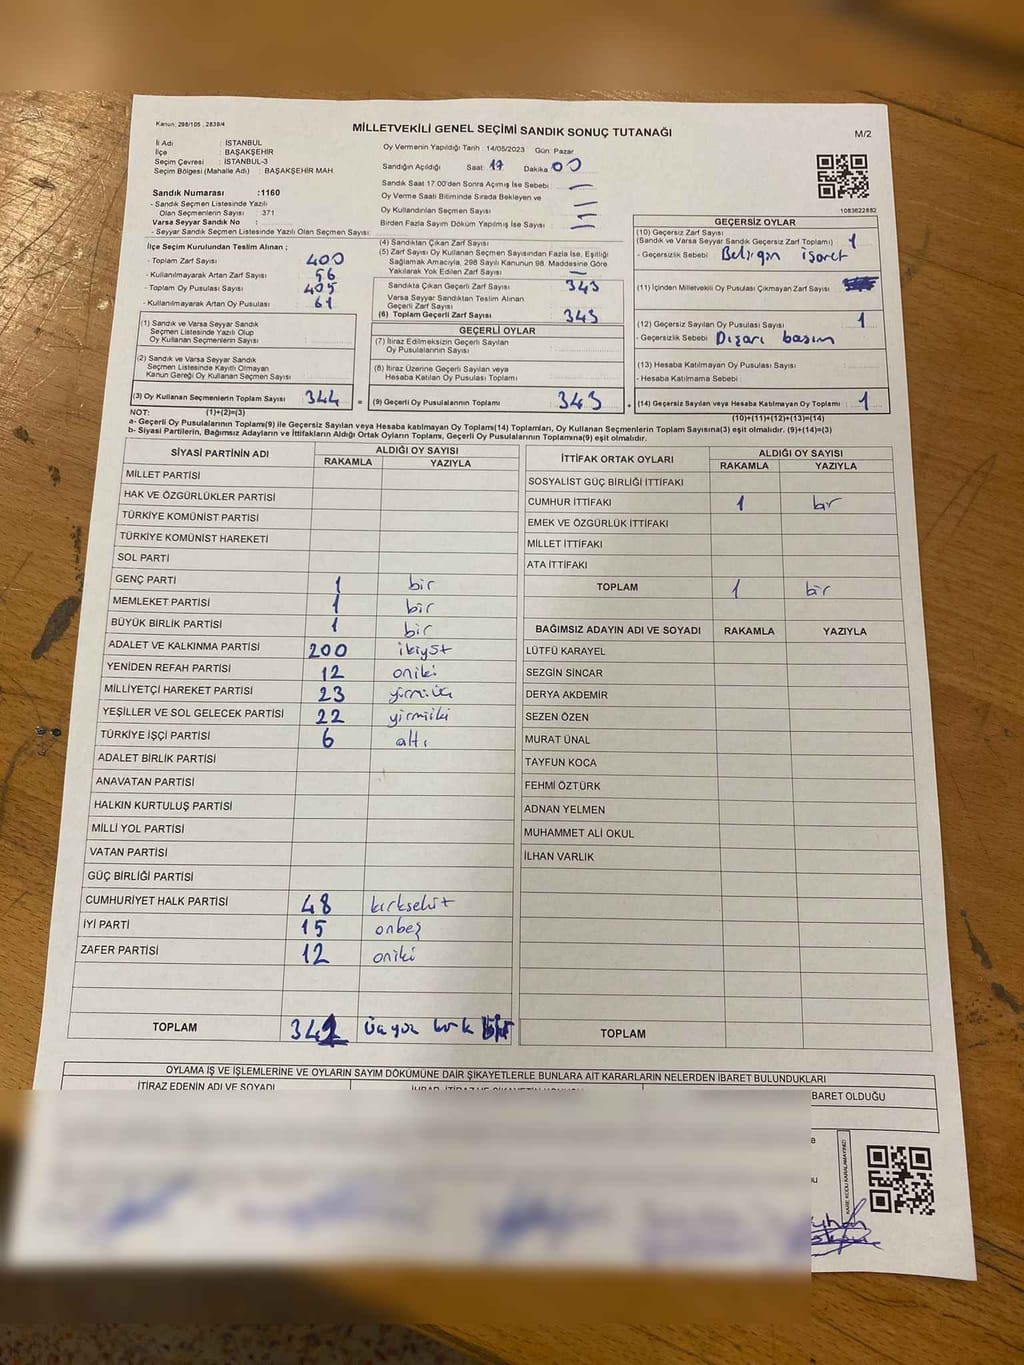 Kanun: 298/105 , 2839/4
MİLLETVEKİLİ GENEL SEÇİMİ SANDIK SONUÇ TUTANAĞI
M/2
İli Adı : İSTANBUL
İlçe : BAŞAKŞEHİR
Seçim Çevresi : İSTANBUL-3
Seçim Bölgesi (Mahalle Adı) : BAŞAKŞEHİR MAH
Sandık Numarası :1160
- Sandık Seçmen Listesinde Yazılı
Olan Seçmenlerin Sayısı : 371
Varsa Seyyar Sandık No :
- Seyyar Sandık Seçmen Listesinde Yazılı Olan Seçmen Sayısı:
İlçe Seçim Kurulundan Teslim Alınan ;
- Toplam Zarf Sayısı : 400
- Kullanılmayarak Artan Zarf Sayısı : 56
- Toplam Oy Pusulası Sayısı : 405
- Kullanılmayarak Artan Oy Pusulası : 61
(1) Sandık ve Varsa Seyyar Sandık
Seçmen Listesinde Yazılı Olup
Oy Kullanan Seçmenlerin Sayısı :
(2) Sandık ve Varsa Seyyar Sandık
Seçmen Listesinde Kayıtlı Olmayan
Kanun Gereği Oy Kullanan Seçmen Sayısı :
(3) Oy Kullanan Seçmenlerin Toplam Sayısı : 344
(1)+(2)=(3)
Oy Vermenin Yapıldığı Tarih : 14/05/2023 Gün: Pazar
Sandığın Açıldığı Saat: 17 Dakika 00
Sandık Saat 17.00'den Sonra Açımış İse Sebebi : —
Oy Verme Saati Bitiminde Sırada Bekleyen ve
Oy Kullandırılan Seçmen Sayısı :
Birden Fazla Sayım Döküm Yapılmış İse Sayısı :
(4) Sandıktan Çıkan Zarf Sayısı
(5) Zarf Sayısı Oy Kullanan Seçmen Sayısından Fazla İse, Eşitliği
Sağlamak Amacıyla, 298 Sayılı Kanunun 98. Maddesine Göre
Yakılarak Yok Edilen Zarf Sayısı : —
Sandıkta Çıkan Geçerli Zarf Sayısı : 343
Varsa Seyyar Sandıktan Teslim Alınan
Geçerli Zarf Sayısı
(6) Toplam Geçerli Zarf Sayısı : 343
GEÇERLİ OYLAR
(7) İtiraz Edilmeksizin Geçerli Sayılan
Oy Pusulalarının Sayısı :
(8) İtiraz Üzerine Geçerli Sayılan veya
Hesaba Katılan Oy Pusulası Toplamı :
= (9) Geçerli Oy Pusulalarının Toplamı : 343 +
1083622882
GEÇERSİZ OYLAR
(10) Geçersiz Zarf Sayısı
(Sandık ve Varsa Seyyar Sandık Geçersiz Zarf Toplamı) : 1
- Geçersizlik Sebebi : Belirgin işaret
(11) İçinden Milletvekili Oy Pusulası Çıkmayan Zarf Sayısı :
(12) Geçersiz Sayılan Oy Pusulası Sayısı : 1
- Geçersizlik Sebebi : Dışarı basım
(13) Hesaba Katılmayan Oy Pusulası Sayısı :
- Hesaba Katılmama Sebebi :
(14) Geçersiz Sayılan veya Hesaba Katılmayan Oy Toplamı : 1
(10)+(11)+(12)+(13)=(14)
NOT:
a- Geçerli Oy Pusulaları Toplamı(9) ile Geçersiz Sayılan veya Hesaba katılmayan Oy Toplamı(14) Toplamları, Oy Kullanan Seçmenlerin Toplam Sayısına(3) eşit olmalıdır. (9)+(14)=(3)
b- Siyasi Partilerin, Bağımsız Adayların ve İttifakların Aldığı Ortak Oyların Toplamı, Geçerli Oy Pusulalarının Toplamına(9) eşit olmalıdır.
SİYASİ PARTİNİN ADI ALDIĞI OY SAYISI
RAKAMLA YAZIYLA
MİLLET PARTİSİ
HAK VE ÖZGÜRLÜKLER PARTİSİ
TÜRKİYE KOMÜNİST PARTİSİ
TÜRKİYE KOMÜNİST HAREKETİ
SOL PARTİ
GENÇ PARTİ 1 bir
MEMLEKET PARTİSİ 1 bir
BÜYÜK BİRLİK PARTİSİ 1 bir
ADALET VE KALKINMA PARTİSİ 200 ikiyüz
YENİDEN REFAH PARTİSİ 12 oniki
MİLLİYETÇİ HAREKET PARTİSİ 23 yirmiüç
YEŞİLLER VE SOL GELECEK PARTİSİ 22 yirmiiki
TÜRKİYE İŞÇİ PARTİSİ 6 altı
ADALET BİRLİK PARTİSİ
ANAVATAN PARTİSİ
HALKIN KURTULUŞ PARTİSİ
MİLLİ YOL PARTİSİ
VATAN PARTİSİ
GÜÇ BİRLİĞİ PARTİSİ
CUMHURİYET HALK PARTİSİ 48 kırksekiz
İYİ PARTİ 15 onbeş
ZAFER PARTİSİ 12 oniki
TOPLAM 342 üçyüz kırk
İTTİFAK ORTAK OYLARI ALDIĞI OY SAYISI
RAKAMLA YAZIYLA
SOSYALİST GÜÇ BİRLİĞİ İTTİFAKI
CUMHUR İTTİFAKI 1 bir
EMEK VE ÖZGÜRLÜK İTTİFAKI
MİLLET İTTİFAKI
ATA İTTİFAKI
TOPLAM 1 bir
BAĞIMSIZ ADAYIN ADI VE SOYADI RAKAMLA YAZIYLA
LÜTFÜ KARAYEL
SEZGİN SİNCAR
DERYA AKDEMİR
SEZEN ÖZEN
MURAT ÜNAL
TAYFUN KOCA
FEHMİ ÖZTÜRK
ADNAN YELMEN
MUHAMMET ALİ OKUL
İLHAN VARLIK
TOPLAM
OYLAMA İŞ VE İŞLEMLERİNE VE OYLARIN SAYIM DÖKÜMÜNE DAİR ŞİKAYETLERLE BUNLARA AİT KARARLARIN NELERDEN İBARET BULUNDUKLARI
İTİRAZ EDENİN ADI VE SOYADI
BARET OLDUĞU